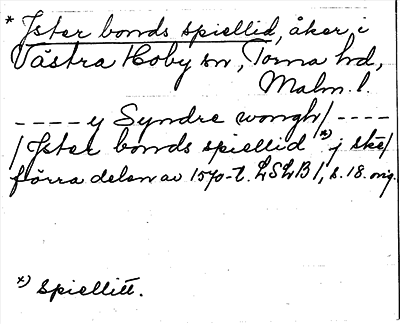 * Jster bonds spiellid, åker, i
Västra Hoby sn, Torna hd,
Malm. l.
---- y Syndre wongh/ ----
/Jster bonds spiellid x) j ske/
förra delen av 1570-t. LSLB 1, s. 18. orig.
x) Spiellitt.